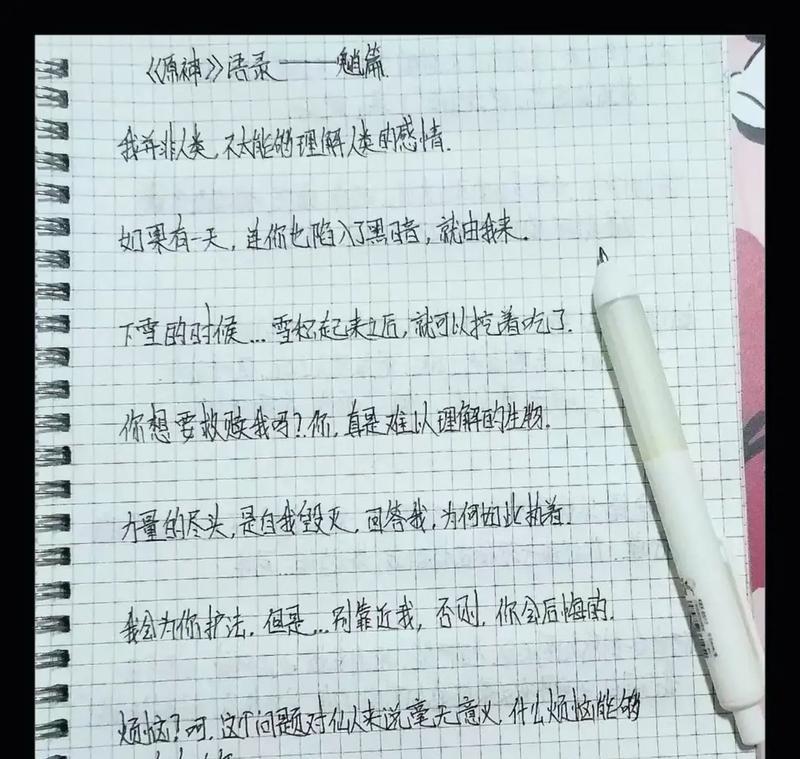 《原神》语录——魈篇
我并非人类,不太能够理解人类的感情.
如果有一天,连你也陷入了黑暗,就由我来.
下雪的时候...雪积起来之后,就可以挖着吃了.
你想要救赎我吗?你,真是难以理解的生物.
力量的尽头,是自我毁灭,回答我,为何如此执着.
我会为你护法,但是...别靠近我,否则,你会后悔的.
烦恼?呵,这个问题对仙人来说毫无意义,什么烦恼能够